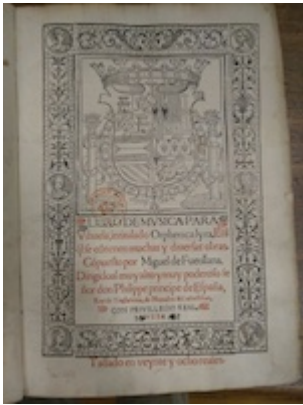 LIBRO DE MVSICA PARA
Vihuela, intitulado Orphenica lyra. Enel
q̃ se cõtienen muchas y diuersas obras.
Cõpuesto por Miguel de Fuenllana.
Dirigido al muy alto y muy poderoso se
ñor don Philippe principe de España,
Rey de Ynglaterra, de Napoles &c.
CON PRIVILEGIO REAL.
1554
Tassado en veynte y ocho reales.